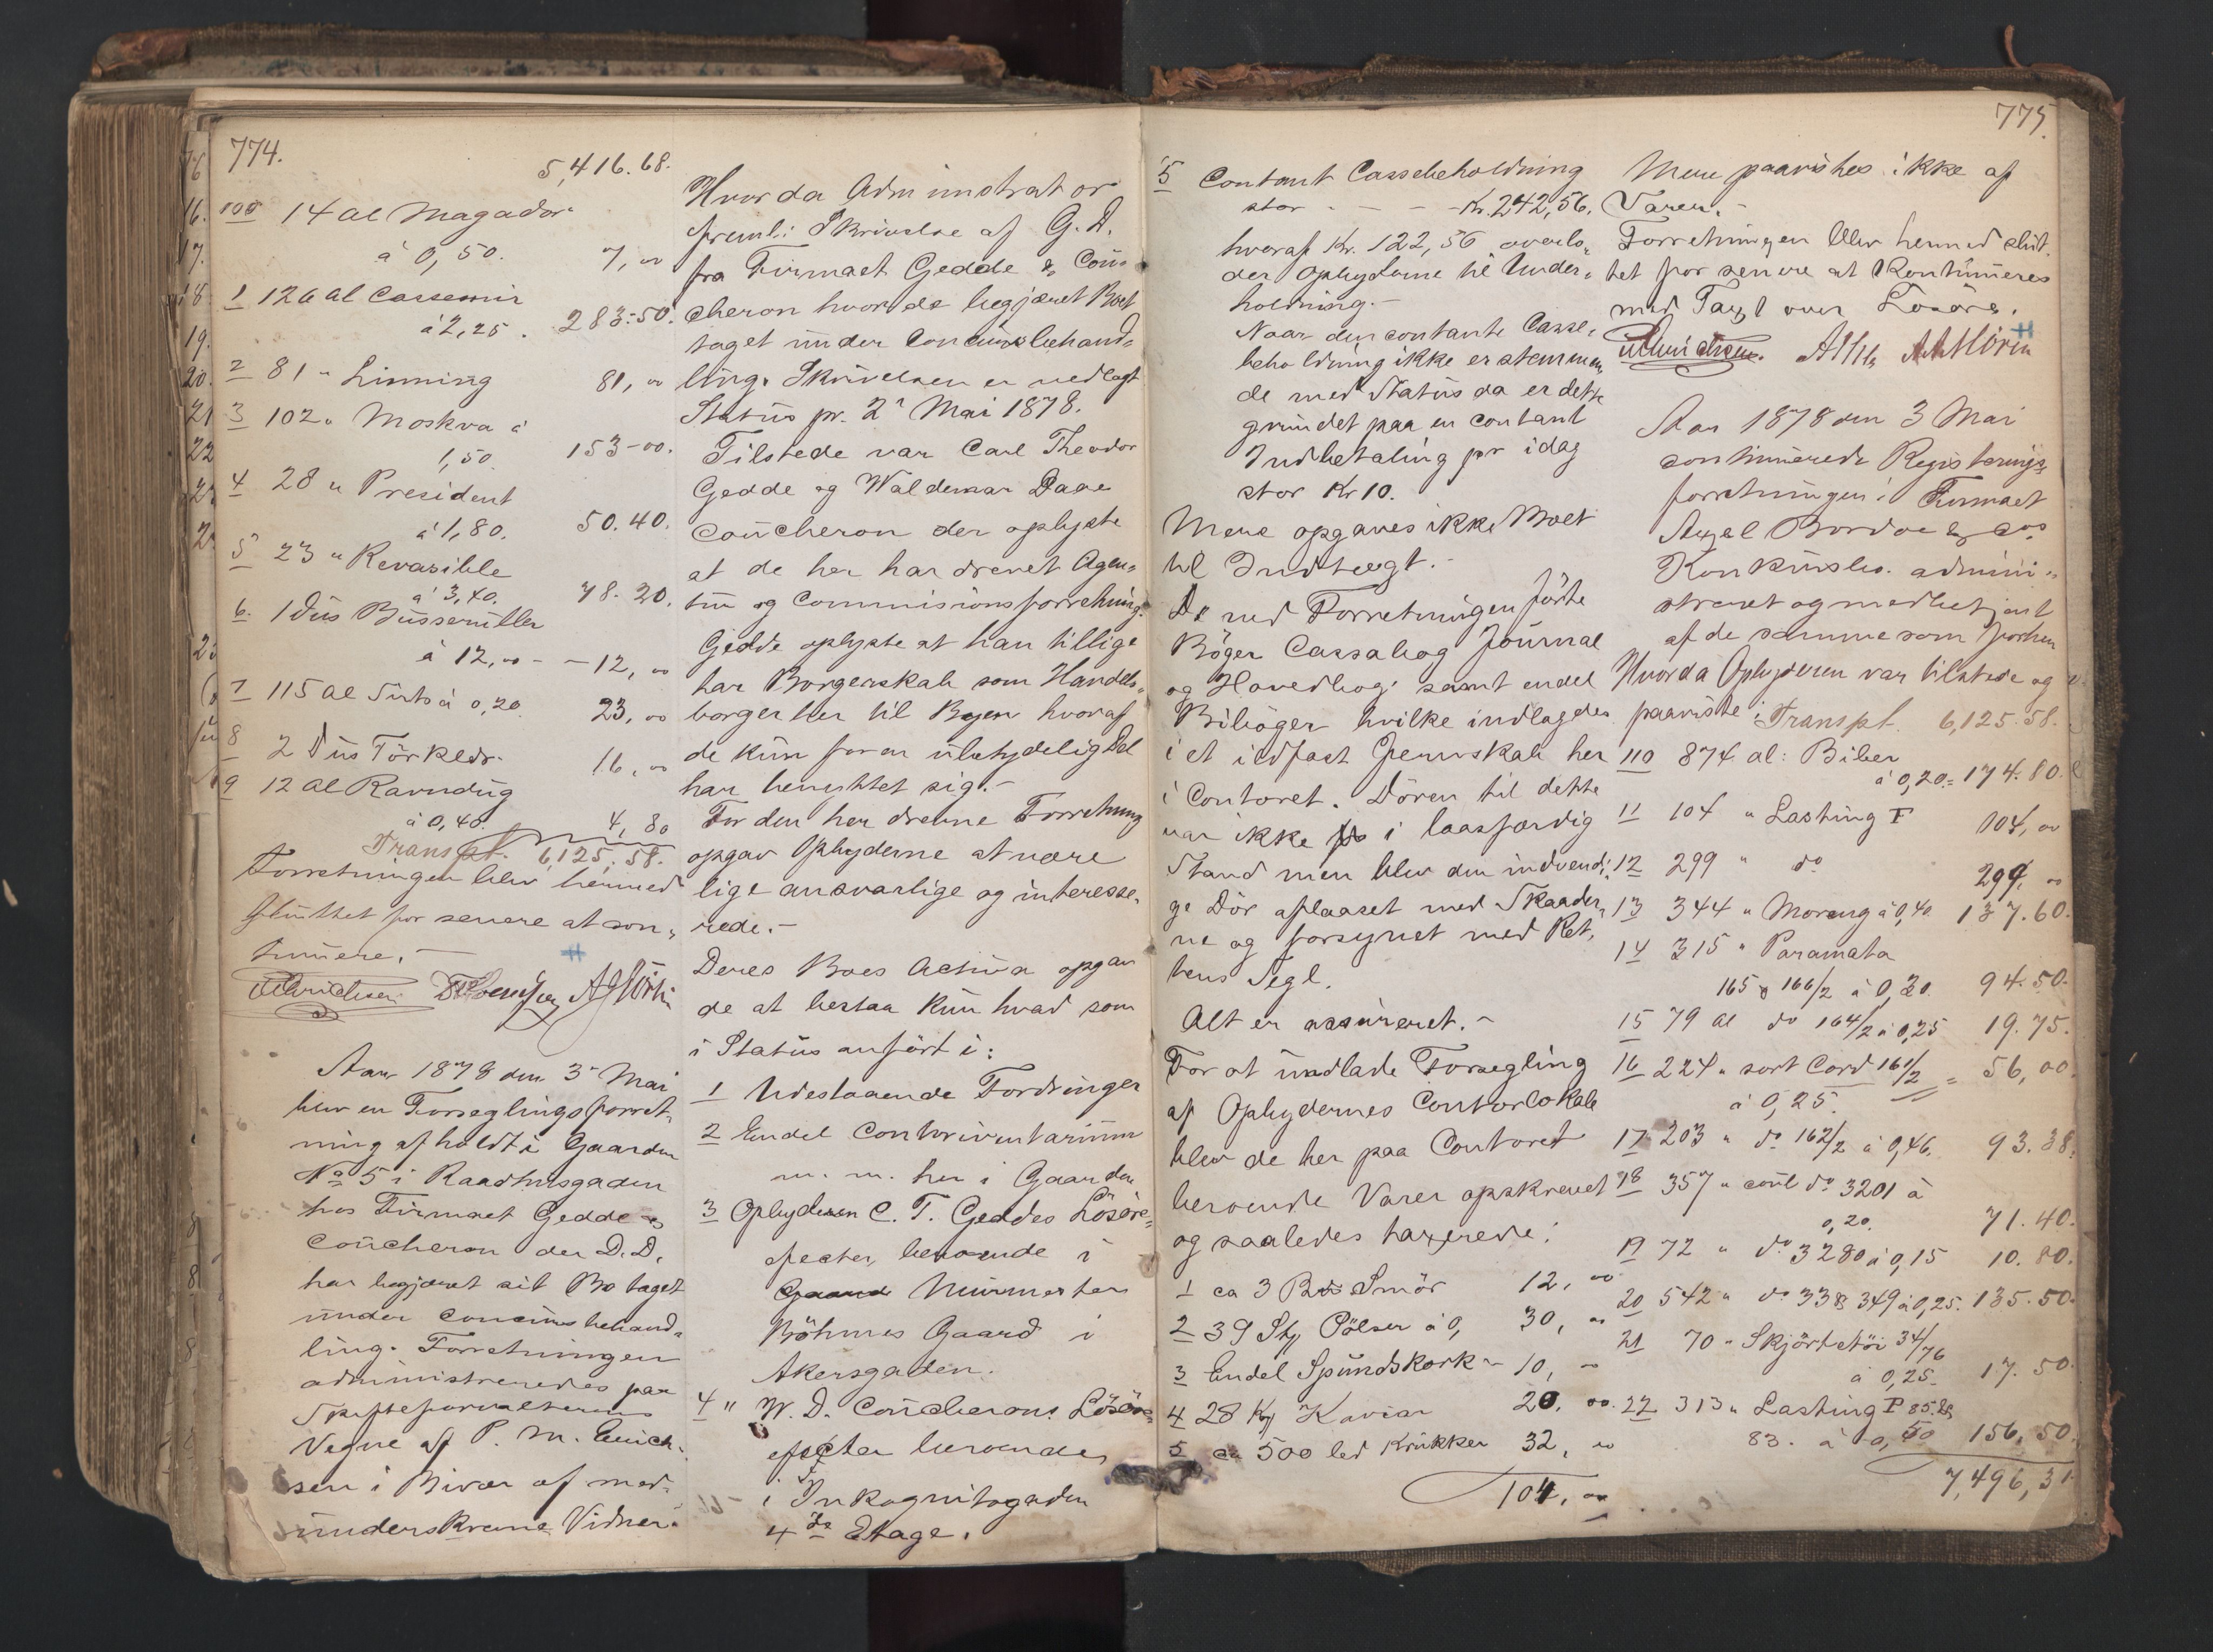 774.
5,416.68.
100 14 al Magador
à 0,50. 7,00
1 126 al Cassemir
à 2,25. 283-50.
2 81 " Linning 81,00
3 102 " Moskva à
1,50. 153-00.
4 28 " President
à 1,80. 50.40.
5 23 " Revasible
à 3,40. 78.20.
6. 1 Dus
à 12,00 - - 12,00
7 115 al Sirts à 0,20 23,00
8 2 Dus Törkldr. 16,00
9 12 al Ravndug
à 0,40. 4,80
Transpt. 6,125.58.
Forretningen blev hermed
sluttet for senere at con-
tinuere. -
Aar 1878 den 3 Mai
blev en Forseglingsforret-
ning afholdt i Gaarden
No 5 i Raadhusgaden
hos Firmaet Gedde &
Coucheron der D.D.
har begjæret sit Bo taget
under Concursbehand-
ling. Forretningen
administreredes paa
Skifteforvalterens
Vegne af P. M. Erich-
sen i Bivær af med-
underskrevne Vidner.
Hvorda Administrator
freml: Skrivelse af G.D.
fra Firmaet Gedde & Cou-
cheron hvor de begjæret Boet
taget under Concursbehand-
ling. Skrivelsen er vedlagt
Status pr. 2 Mai 1878.
Tilstede var Carl Theodor
Gedde og Waldemar Daae
Coucheron der oplyste
at de her har drevet Agen-
tur og Commisionsforretning.
Gedde oplyste at han tillige
har Borgerskab som Handels-
borger her til Byen hvoraf
de kun for en ubetydelig Del
har benyttet sig. -
For den her drevne Forretning
opgav Opbyderne at være
lige ansvarlige og interesse-
rede. -
Deres Boes Activa opgav
de at bestaa kun hvad som
i Status anført i:
1 Udestaaende Fordringer
2 Endel Contorinventarium
m. m. her i Gaarden
3 Opbyderen C. T. Geddes Lösöre-
efecter, beroende i
Gaard Murmester
Böhmes Gaard i
Akersgaden.
4 " W. D. Coucherons Lösöre-
efecter beroende
i Inkognitogaden
4de Etage.
775.
5 Contant Cassebeholdning
stor - - - Kr. 242,56.
hvoraf Kr. 122,56 overlo-
des Opbyderne til Under-
holdning. -
Naar den contante Casse-
beholdning ikke er stemmen-
de med Status da er dette
grundet paa en contant
Indbetaling pr idag
stor Kr 10.
Mere opgaves ikke Boet
til Indtægt. -
De ved Forretningen förte
Böger Cassabog Journal
og Hovedbog samt endel
Biböger hvilke indlagdes
i et ildfast Jernskab her
i Contoret. Dören til dette
var ikke i laasfærdig
Stand men blev den indvendi-
ge Dör aflaaset med Skaader-
ne og forsynet med Ret-
tens Segl.
Alt er assureret. -
For at undlade Forsegling
af Opbydernes Contorlokale
blev de her paa Contoret
beroende Varer opskrevet
og saaledes taxerede:
1 ca 3 Bs Smör 12,00
2 39 Stk Pölser à 0, 30,00
3 Endel Spundskork - 10,00
4 28 Kg Kaviar 20,00.
5 ca 500 led Krukker 32,00
104,00
Mere paavistes ikke af
Varer. -
Forretningen blev hermed slut-
tet for senere at Kontinueres
med Taxt over Lösöre.
Aar 1878 den 3 Mai
continuerede Registrerings-
forretningen i Firmaet
Axel Bordoe & Cos
Konkursbo. admini-
streret og medbetjent
af de samme som forhen
Hvorda Opbyderen var tilstede og
paaviste: Transpt. 6,125.58.
110 874 al: Biber
à 0,20 = 174.80.
11 104 " Lasting F 104,00
12 299 " do 299,00
13 344 " Moreng à 0,40. 137.60.
14 315 " Paramata
165 & 166/2 à 0,30. 94.50.
15 79 al do 164/2 à 0,25 19.75.
16 224 " sort Cord 161/2 = 56,00.
à 0,25.
17 203 " do 162/2 à 0,46. 93.38.
18 357 " coul do 3201 à
0,20. 71.40.
19 72 " do 3280 à 0,15 10.80.
20 542 " do 338 349 à 0,25. 135.50.
21 70 " Skjörtetöi 34/76
à 0,25. 17.50.
22 313 " Lasting F 85.
83. à 0,50 156,50.
7,496,31